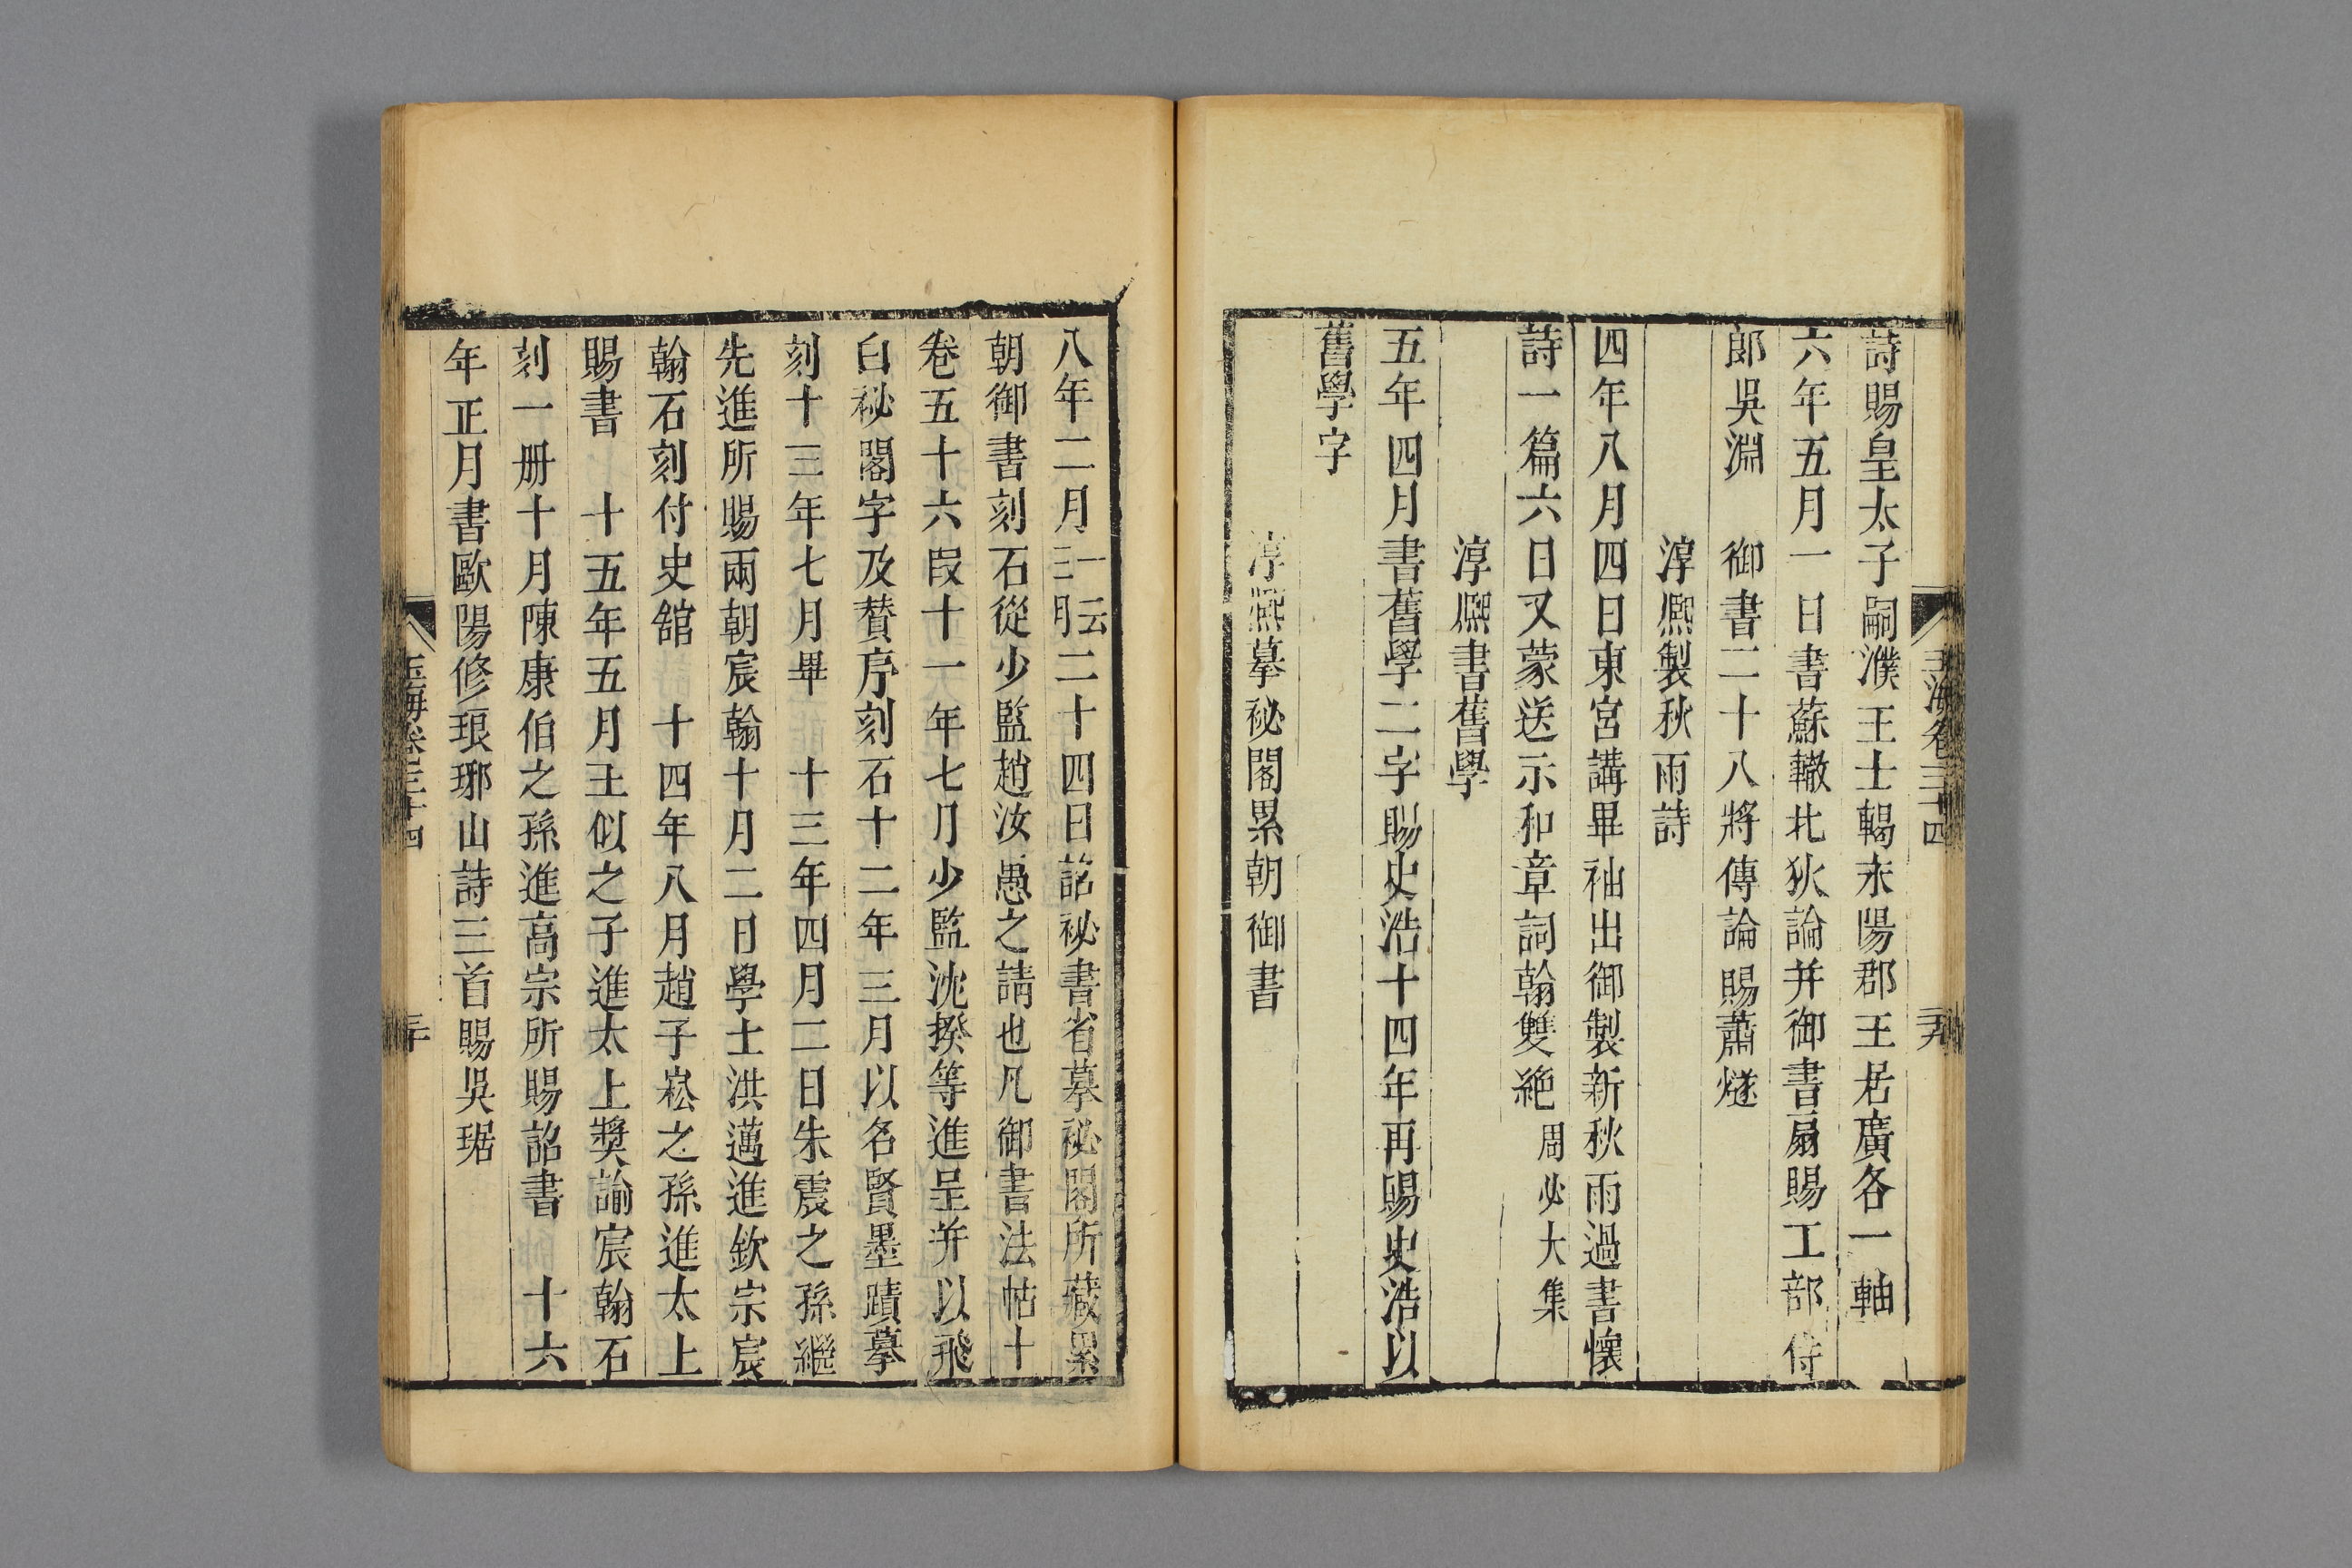 玉海卷三十四
詩賜皇太子嗣濮王士輵永陽郡王居廣各一軸
六年五月一日書蘇轍北狄論并御書扇賜工部侍
郎吳淵　御書二十八將傳論賜蕭燧
淳熈製秋雨詩
四年八月四日東宮講畢袖出御製新秋雨過書懷
詩一篇六日又蒙送示和章詞翰雙絶周必大集
淳熈書舊學
五年四月書舊學二字賜史浩十四年再賜史浩以
舊學字
淳熈摹祕閣累朝御書
八年二月一云三月二十四日詔祕書省摹祕閣所藏累
朝御書書刻石從少監趙汝愚之請也凡御書法帖十
卷五十六段十一年七月少監沈揆等進呈并以飛
白祕閣字及贊序刻石十二年三月以名賢墨蹟摹
刻十三年七月畢　十三年四月二日朱震之孫繼
先進所賜兩朝宸翰十月二日學士洪邁進欽宗宸
翰石刻付史舘　十四年八月趙子崧之孫進太上
賜書　十五年五月王似之子進太上奬諭宸翰石
刻一冊十月陳康伯之孫進高宗所賜詔書　十六
年正月書歐陽修琅琊山詩三首賜吳琚
玉海卷三十四
三十